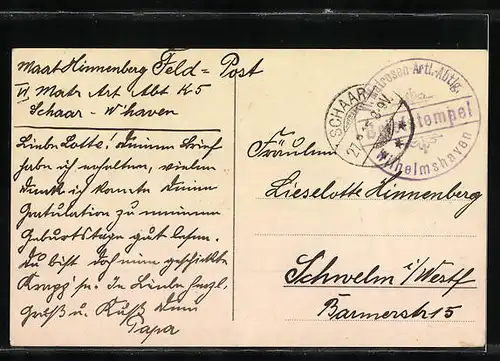 Maat Hinnenberg Feld=Post
VI Matr Art Abt K5
Schaar - W'haven
Liebe Lotte! Deinen Brief
habe ich erhalten, vielen
Dank ich konnte Deine
Gratulation zu meinem
Geburtstage gut lesen.
Du bist doch mein geschickte
In Liebe herzl.
Gruß u. Kuß Dein
Papa
SCHAAR
27.
Matrosen-Artl.-Abtlg.
Briefstempel
Wilhelmshaven
Fräulein
Lieselotte Hinnenberg
Schwelm i/Westf
Barmerstr 15